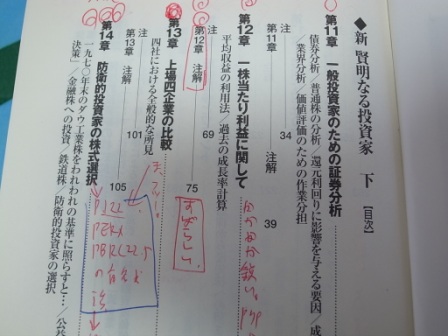 ◆新 賢明なる投資家 下【目次】
第11章 一般投資家のための証券分析
債券分析/普通株の分析/還元利回りに影響を与える要因/成
/業界分析/価値評価のための作業分担
注 34
第11章 注解 39
第12章 一株当たり利益に関して
平均収益の利用法/過去の成長率計算
注 69
第12章 注解 75
すばらしい。
第13章 上場四企業の比較
四社における全般的な所見
注 101
第13章 注解 105
第14章 防衛的投資家の株式選択
一九七〇年末のダウ工業株をわれわれの基準に照らすと…/公共
決策」/金融株への投資/鉄道株/防衛的投資家の選択
P122
PERX
PBR
の